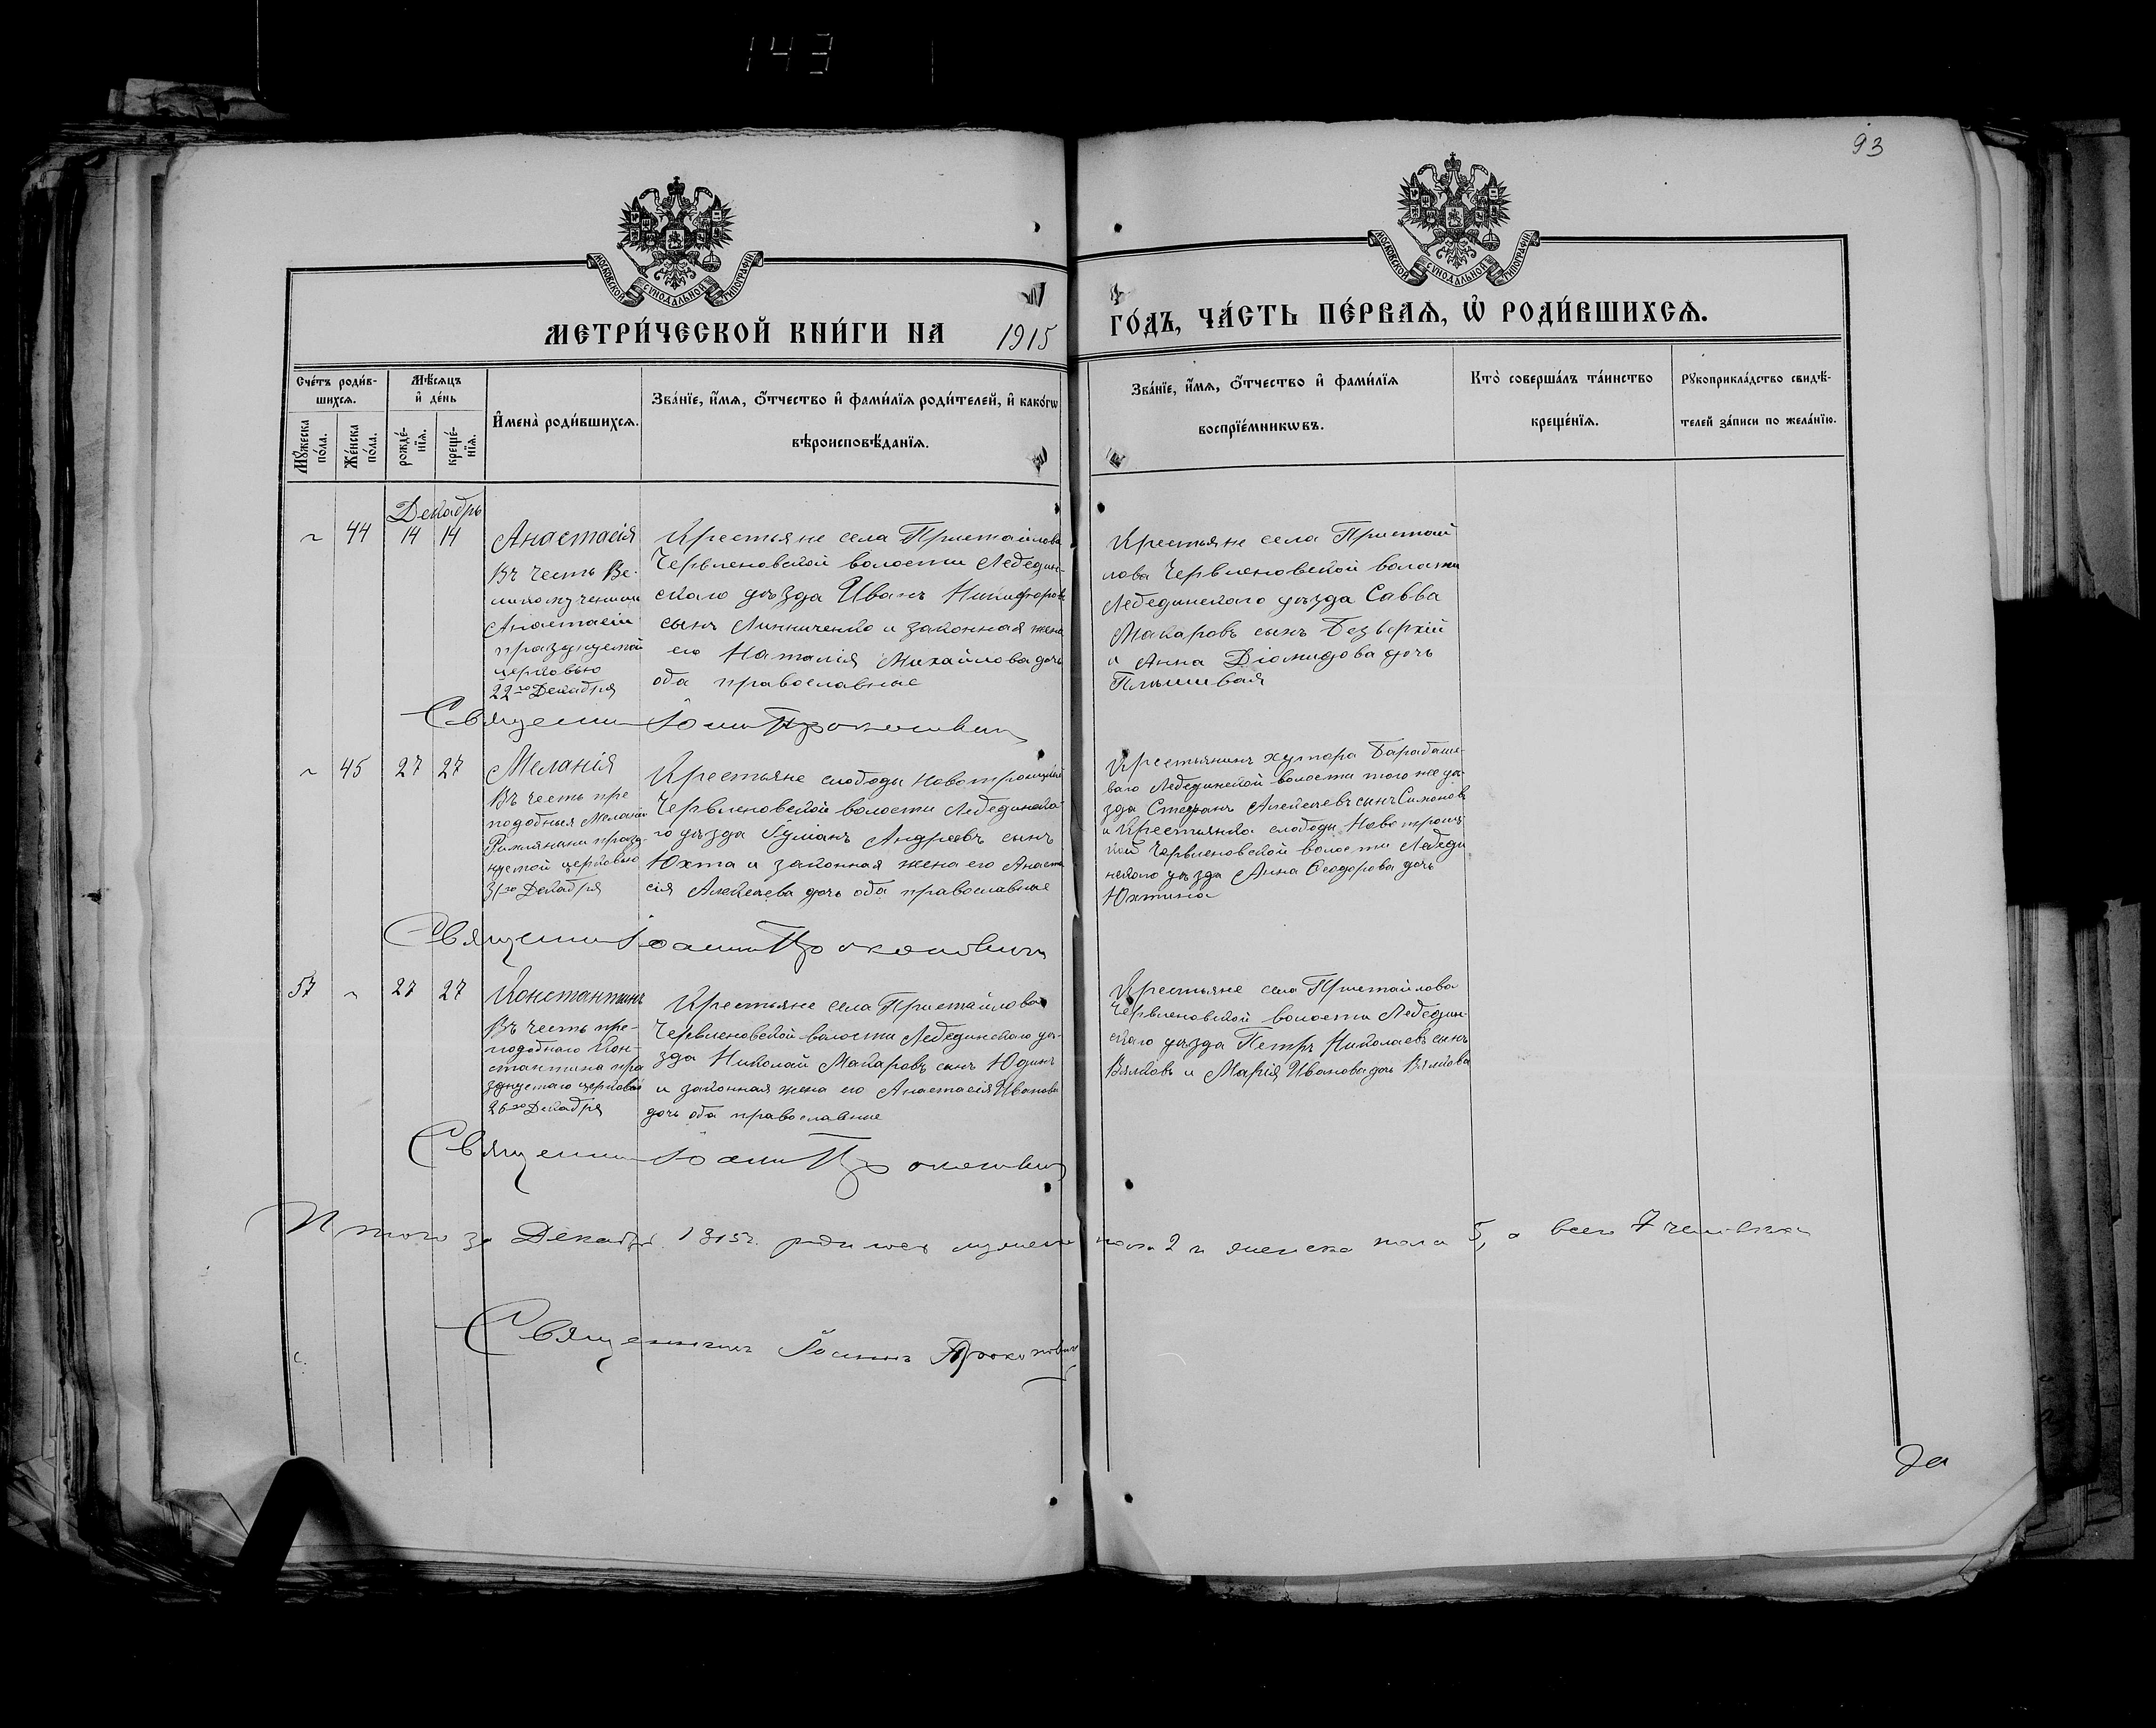 143
93
МОСКОВСКОЙ СѴНОДАЛЬНОЙ ТИПОГРАФІИ
МОСКОВСКОЙ СѴНОДАЛЬНОЙ ТИПОГРАФІИ
МЕТРИ́ЧЕСКОЙ КНИ́ГИ НА 1915 ГО́ДЪ, ЧА́СТЬ ПЕ́РВАѦ, Ѡ҆ РОДИ́ВШИХСѦ.
Сче́тъ роди́в-
шихсѧ.
Мꙋ́жеска по́ла.
Же́нска по́ла.
Мѣ́сѧцъ
и҆ де́нь
рожде́-
нїѧ.
креще́-
нїѧ.
И҆мена̀ роди́вшихсѧ.
Зва́нїе, и҆́мѧ, ѻ҆́тчество и҆ фами́лїѧ роди́телей, и҆ како́гѡ
вѣроисповѣ́данїѧ.
Зва́нїе, и҆́мѧ, ѻ҆́тчество и҆ фами́лїѧ
воспрїе́мникѡвъ.
Кто̀ соверша́лъ та́инство
креще́нїѧ.
Рꙋкоприкла́дство свидѣ́-
телей за́писи по жела́нїю.
Декабрь
~ 44 14 14
Анастасія
Въ честь Ве-
ликомученицы
Анастасіи
празднуемой
церковью
22го Декабря
Крестьяне села Пристайлова
Червленовской волости Лебедин-
скаго уѣзда Иванъ Никифоровъ
сынъ Линниченко и законная жена
его Наталія Михайлова дочь
оба православные
Крестьяне села Пристай
лова Червленовской волости
Лебединскаго уѣзда Савва
Макаровъ сынъ Безверхій
и Анна Діомидова дочь
Плѣшивая
Священник Іоанн Прокопович
~ 45 27 27
Меланія
Въ честь пре
подобныя Меланіи
Римляныни праздн-
уемой церковью
31го Декабря
Крестьяне слободы Новотроицкой
Червленовской волости Лебединска-
го уѣзда Іуліанъ Андреевъ сынъ
Юхта и законная жена его Анаста
сія Алексѣева дочь оба православные
Крестьянинъ хутора Барабаше-
ваго Лебединской волости того же уѣ-
зда Стефанъ Алексѣевъ сынъ Симоновъ
и крестьянка слободы Новотроиц
кой Червленовской волости Лебеди
нскаго уѣзда Анна Ѳеодорова дочь
Юхтина
Священник Іоанн Прокопович
57 ~ 27 27
Константинъ
Въ честь пре-
подобнаго Кон-
стантина пра
зднуемаго церковью
26го Декабря
Крестьяне села Пристайлова
Червленовской волости Лебединскаго уѣ-
зда Николай Макаровъ сынъ Юдинъ
и законная жена его Анастасія Иванова
дочь оба православные
Крестьяне села Пристайлова
Червленовской волости Лебедин-
скаго уѣзда Петръ Николаевъ сынъ
Вялковъ и Марія Иванова дочь Вялкова
Священник Іоанн Прокопович
Итого за Декабрь 1915г. родилось мужеска пола 2 и женска пола 5, а всего 7 человѣкъ
Священникъ Іоаннъ Прокопович